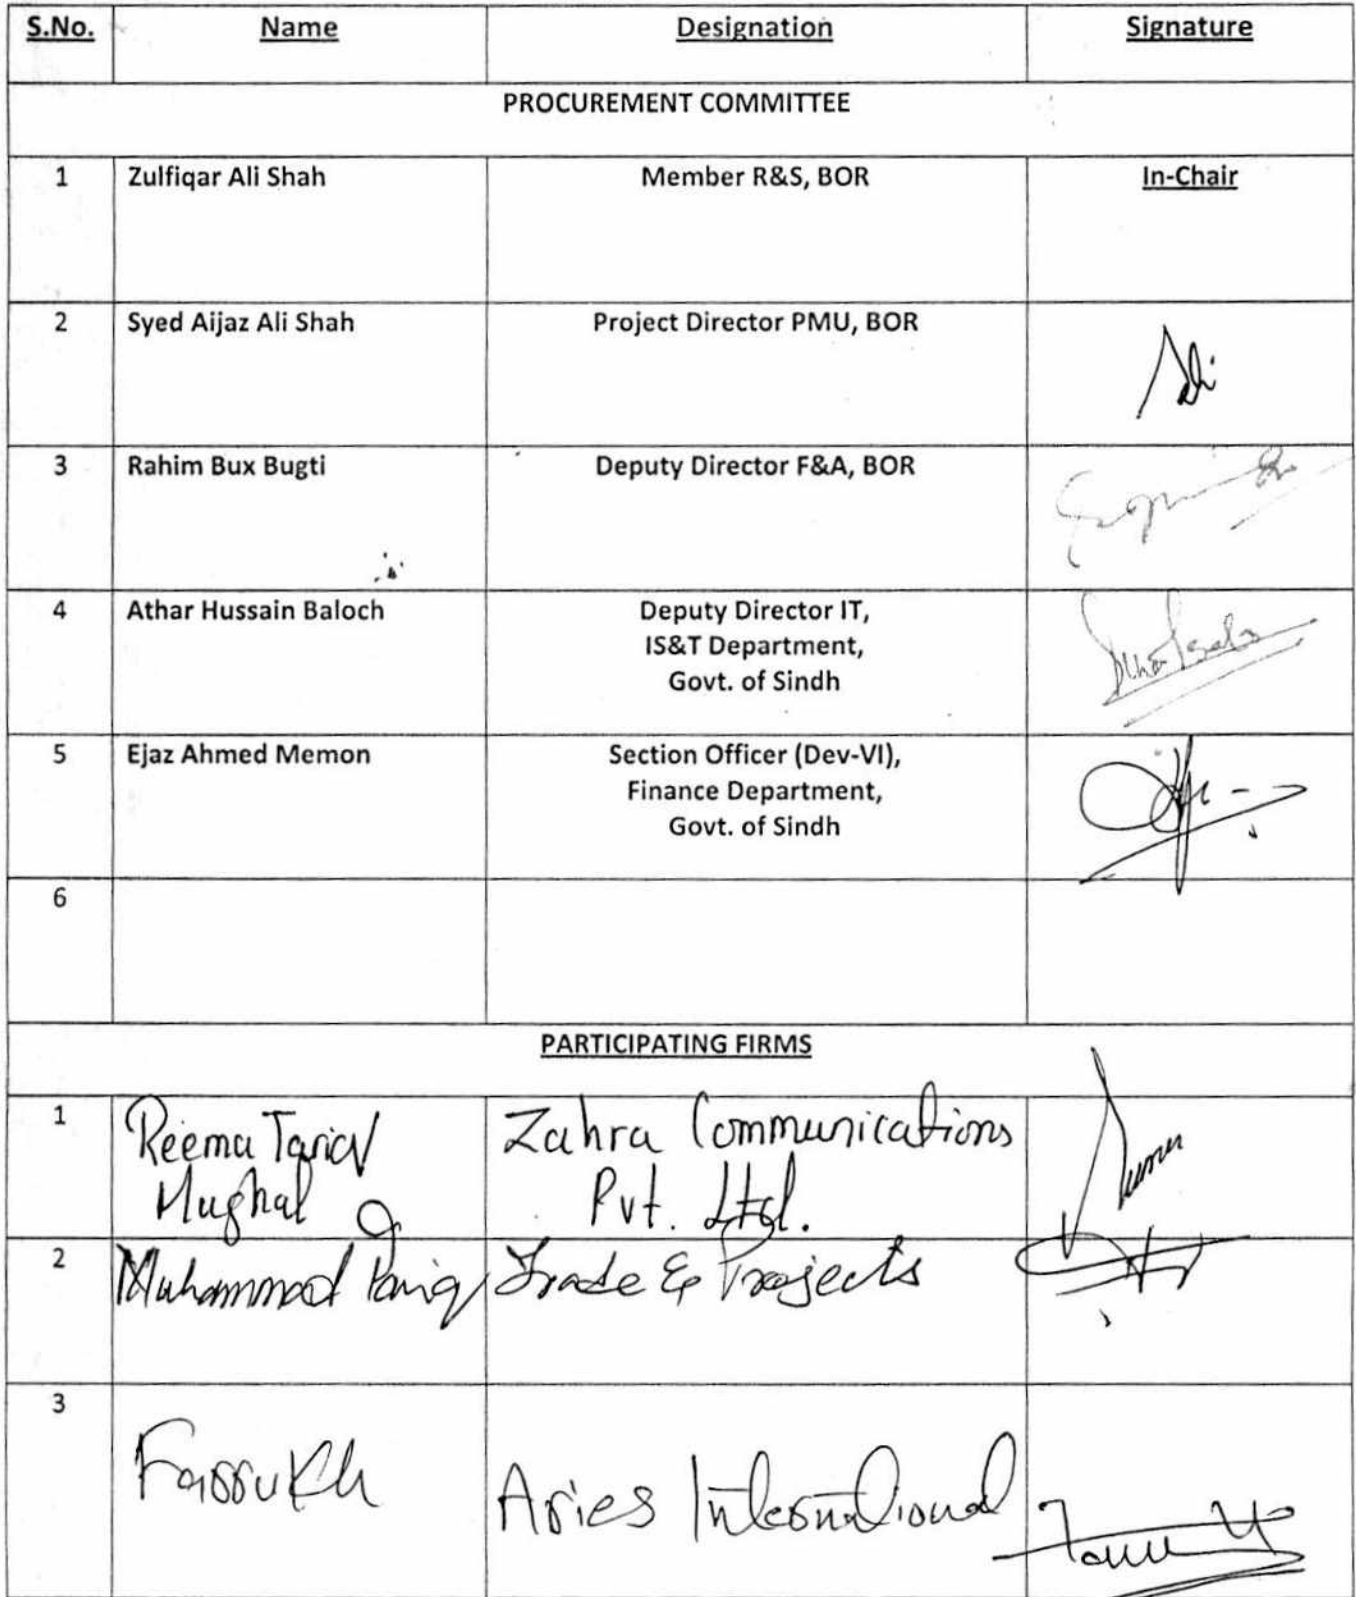 S.No. Name Designation Signature
PROCUREMENT COMMITTEE
1 Zulfiqar Ali Shah Member R&S, BOR In-Chair
2 Syed Aijaz Ali Shah Project Director PMU, BOR
3 Rahim Bux Bugti Deputy Director F&A, BOR
4 Athar Hussain Baloch Deputy Director IT,
IS&T Department,
Govt. of Sindh
5 Ejaz Ahmed Memon Section Officer (Dev-VI),
Finance Department,
Govt. of Sindh
6
PARTICIPATING FIRMS
1 Reema Tariq Zahra Communications
Mughal Pvt. Ltd.
2 Muhammad Trade & Projects
3 Farrukh Aries International